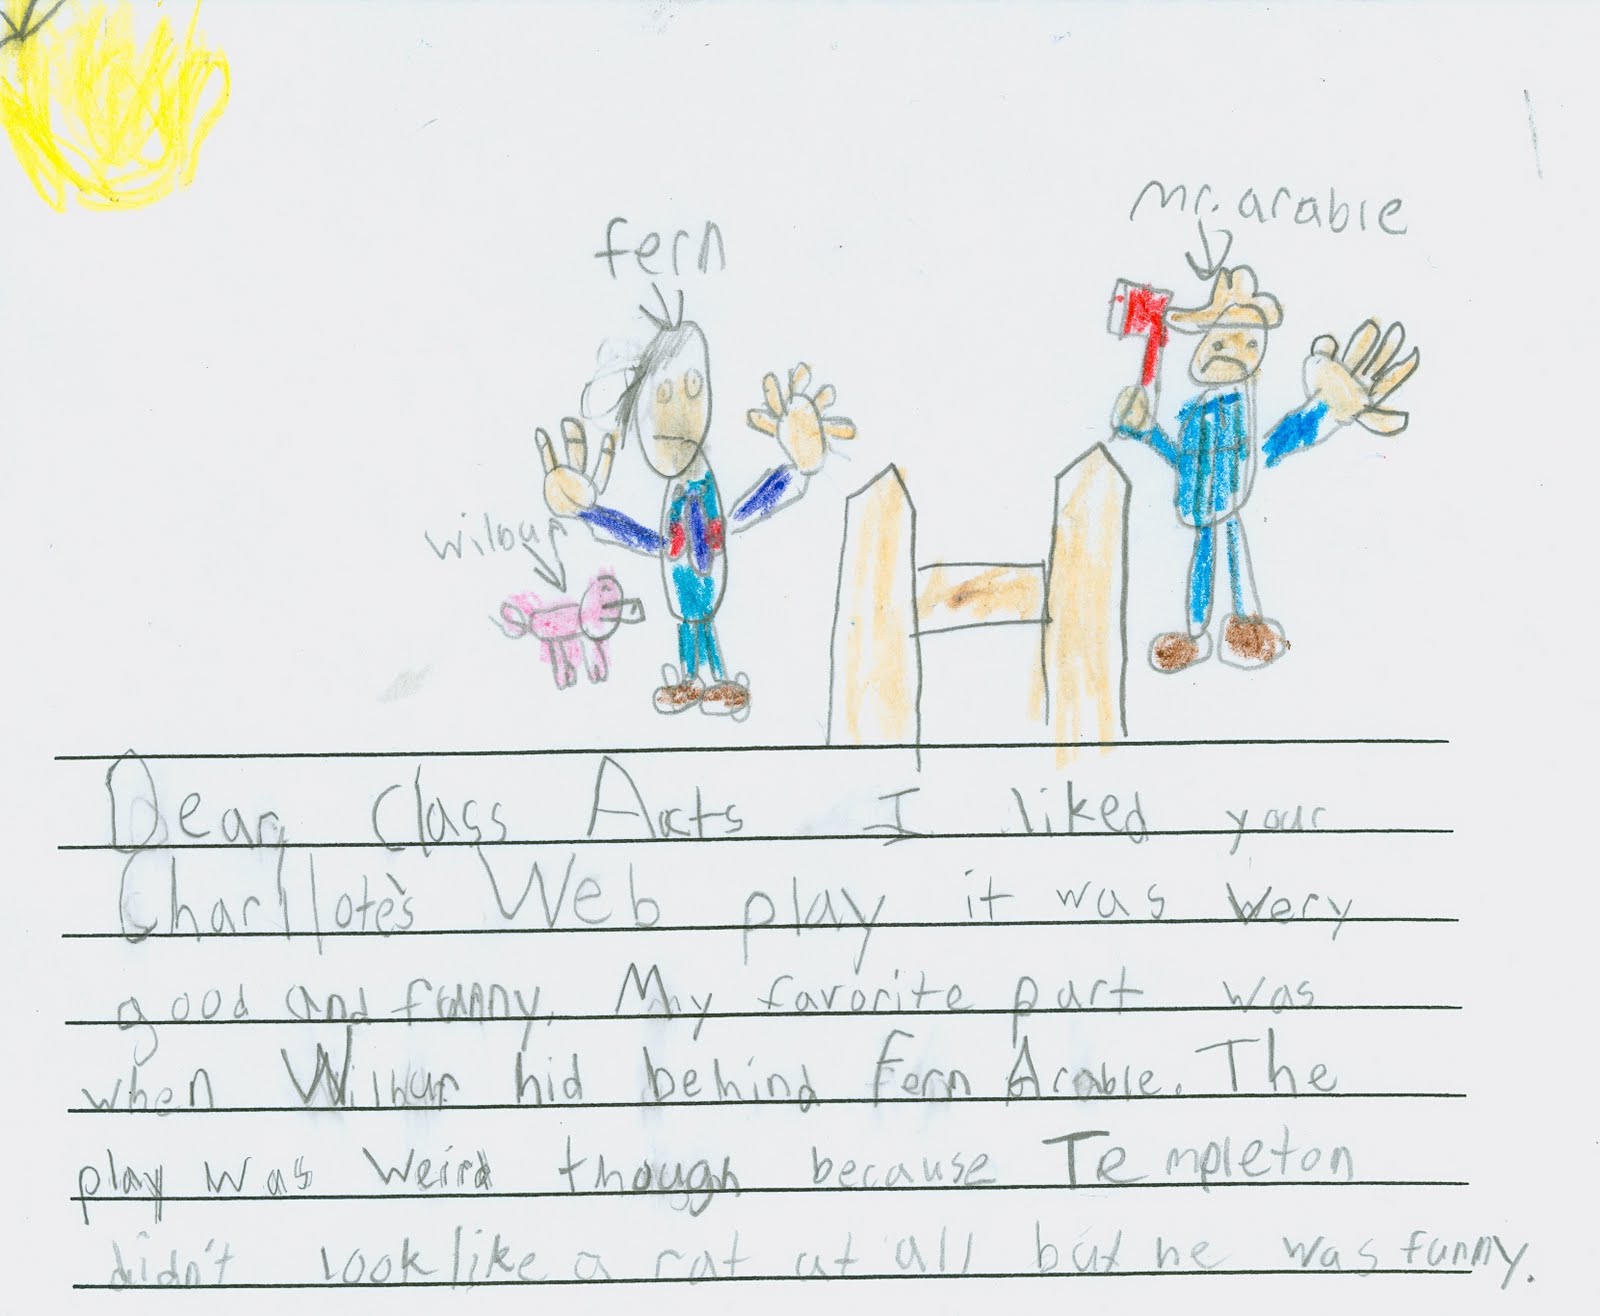 mr. arabie
fern
wilbur
Dear, Class Acts I liked your
Charllote's Web play it was very
good and funny. My favorite part was
when Wilbur hid behind Fern Arable. The
play was weird though because Templeton
didn't look like a rat at all but he was funny.